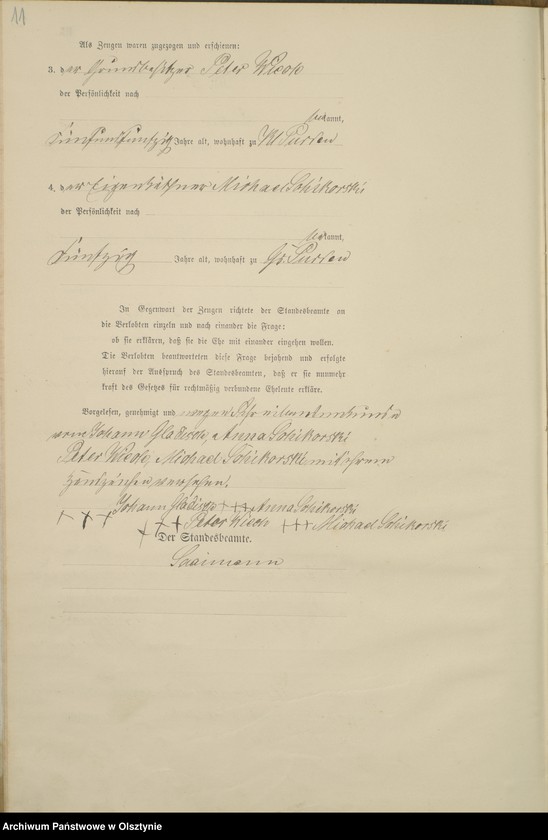 11
Als Zeugen waren zugezogen und erschienen:
3. der Grundbesitzer Peter Wieck
der Persönlichkeit nach
bekannt,
fünfundfünfzig Jahre alt, wohnhaft zu Kl Purden
4. der Eigenkäthner Michael Schikorski
der Persönlichkeit nach
bekannt,
fünfzig Jahre alt, wohnhaft zu Gr. Purden
In Gegenwart der Zeugen richtete der Standesbeamte an
die Verlobten einzeln und nach einander die Frage:
ob sie erklären, daß sie die Ehe mit einander eingehen wollen.
Die Verlobten beantworteten diese Frage bejahend und erfolgte
hierauf der Ausspruch des Standesbeamten, daß er sie nunmehr
kraft des Gesetzes für rechtmäßig verbundene Eheleute erkläre.
Vorgelesen, genehmigt und wegen Schreibensunkunde
vom Johann Gladisch, Anna Schikorski
Peter Wieck, Michael Schikorski mit ihrem
Handzeichen versehen.
Johann Gladisch +++ Anna Schikorski
+++ ++ Peter Wieck +++ Michael Schikorski
+
Der Standesbeamte.
Archiwum Państwowe w Olsztynie